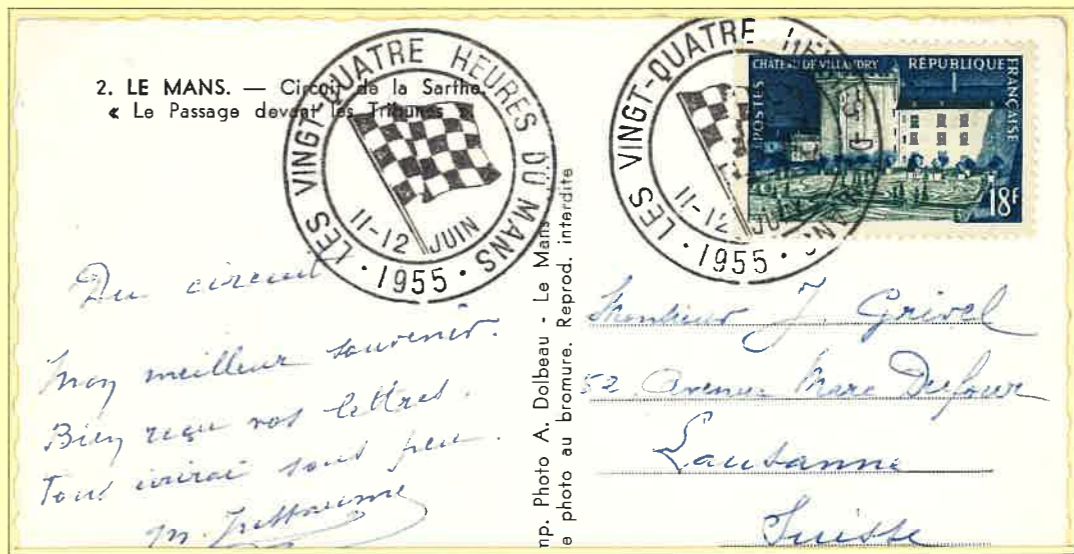 2. LE MANS. — Circuit de la Sarthe.
« Le Passage devant les Tribunes ».
LES VINGT-QUATRE HEURES DU MANS
11-12 JUIN
• 1955 •
LES VINGT-QUATRE HEURES DU MANS
11-12 JUIN
• 1955 •
CHÂTEAU DE VILLANDRY
RÉPUBLIQUE FRANÇAISE
POSTES
18f
Du circuit
mon meilleur souvenir.
Bien reçu vos lettres.
Vous écrirai sous peu.
M.
mp. Photo A. Dolbeau - Le Mans
e photo au bromure. Reprod. interdite
Monsieur J. Grivel
52 Avenue Marc Dufour
Lausanne
Suisse